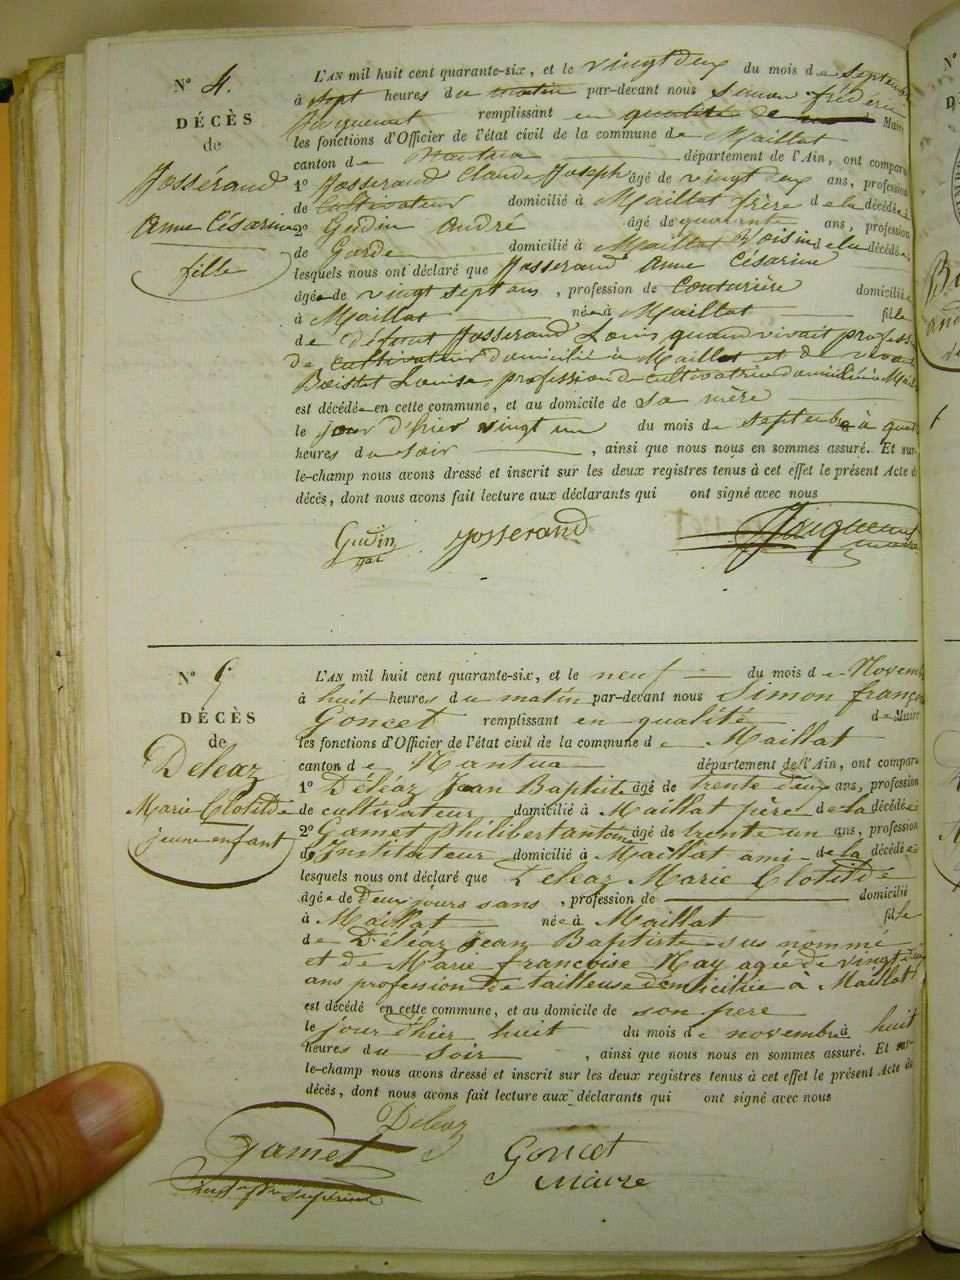 N° 4.
DÉCÈS
de
Josserand
Anne Césarine
fille
L'AN mil huit cent quarante-six, et le vingt deux du mois de septembre
à sept heures du matin par-devant nous Simon frédéric
Jacquemet remplissant en qualité de Maire
les fonctions d'Officier de l'état civil de la commune de Maillat
canton de Nantua département de l'Ain, ont comparu
1° Josserand Claude Joseph âgé de vingt deux ans, profession
de cultivateur domicilié à Maillat frère de la décédée
2° Gudin André âgé de quarante ans, profession
de Garde domicilié à Maillat Voisin de la décédée
lesquels nous ont déclaré que Josserand Anne Césarine
âgée de vingt sept ans, profession de couturière domiciliée
à Maillat née à Maillat fille
de défunt Josserand Louis quand vivait profess
de cultivateur domicilié à Maillat et de vivante
Louise profession de cultivatrice domiciliée à Mail
est décédée en cette commune, et au domicile de sa mère
le jour d'hier vingt un du mois de septembre à quat
heures du soir, ainsi que nous nous en sommes assuré. Et sur-
le-champ nous avons dressé et inscrit sur les deux registres tenus à cet effet le présent Acte de
décès, dont nous avons fait lecture aux déclarants qui ont signé avec nous
Gudin Josserand Jacquemet
maire
N° 5
DÉCÈS
de
Deleaz
Marie Clotilde
jeune enfant
L'AN mil huit cent quarante-six, et le neuf du mois de Novembre
à huit heures du matin par-devant nous Simon françois
Goncet remplissant en qualité de Maire
les fonctions d'Officier de l'état civil de la commune de Maillat
canton de Nantua département de l'Ain, ont comparu
1° Déléaz Jean Baptiste âgé de trente deux ans, profession
de cultivateur domicilié à Maillat père de la décédée
2° Gamet philibert antoine âgé de trente un ans, profession
de Instituteur domicilié à Maillat ami de la décédée
lesquels nous ont déclaré que Deleaz Marie Clotilde
âgée de Deux jours sans, profession de domicilié
à Maillat née à Maillat fille
de Déléaz Jean Baptiste sus nommé
et de Marie françoise Nay agée de vingt deux
ans profession de tailleuse domiciliée à Maillat
est décédé en cette commune, et au domicile de son père
le jour d'hier huit du mois de novembre à huit
heures du soir, ainsi que nous nous en sommes assuré. Et sur-
le-champ nous avons dressé et inscrit sur les deux registres tenus à cet effet le présent Acte de
décès, dont nous avons fait lecture aux déclarants qui ont signé avec nous
Deleaz
Gamet Goncet
Maire